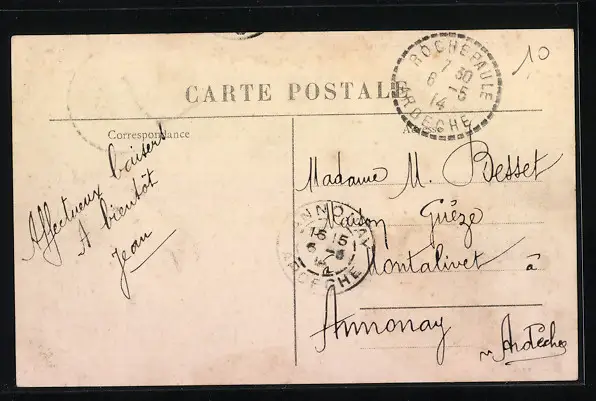 10
ROCHEPAULE
7 30
6 -5
14
ARDÈCHE
CARTE POSTALE
Correspondance
Affectueux baisers
A bientôt
Jean
Madame M. Besset
Maison Guèze
Montalivet à
Annonay
Ardèche
ANNONAY
15 15
6 -5
14
ARDECHE